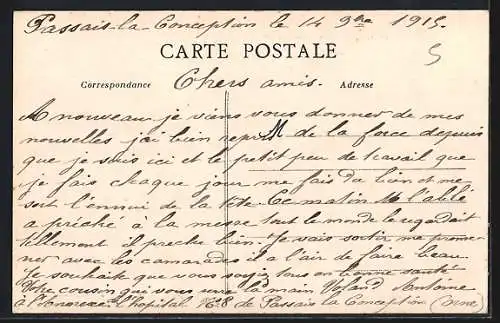 Passais-la-Conception le 14 9bre 1915.
5
CARTE POSTALE
Correspondance Chers amis. Adresse
A nouveau je viens vous donner de mes
nouvelles j'ai bien repris de la force depuis
que je suis ici et le petit peu de travail que
je fais chaque jour me fais du bien et me
sort l'ennui de la tête. Ce matin M l'abbé
a prêché à la messe tout le monde le regardait
tillement il preche bien. Je vais sortir me prome-
ner avec les camarades il a l'air de faire beau.
Je souhaite que vous soyiz tous en bonne santé
Votre cousin qui vous serre la main Antoine
à l'hopital N°8 de Passais la Conception (Orne)